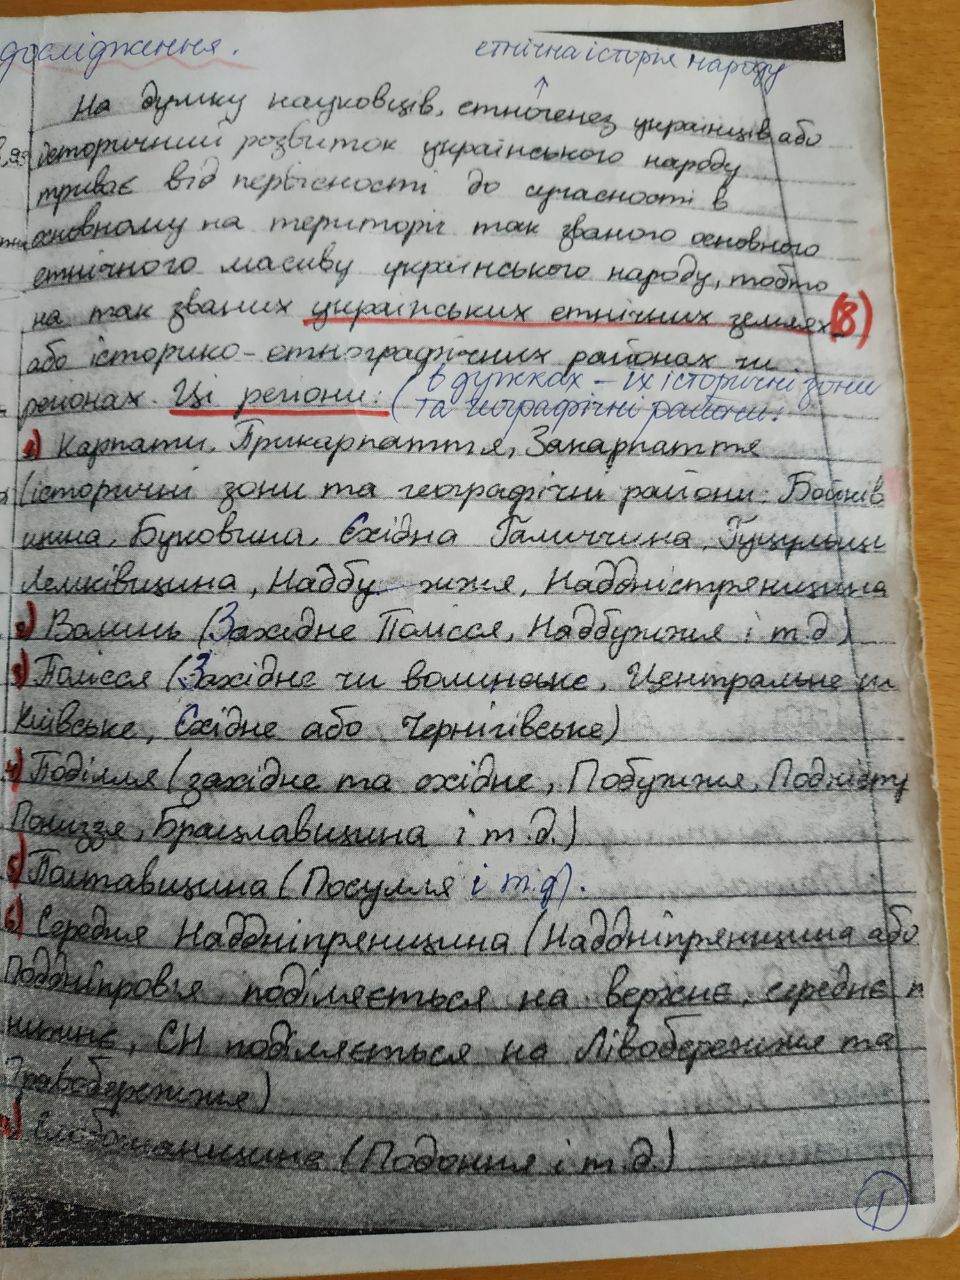 дослідження.
етнічна історія народу
На думку науковців, етногенез українців або
історичний розвиток українського народу
триває від первісності до сучасності в
основному на території так званого основного
етнічного масиву українського народу, тобто
на так званих українських етнічних землях (8)
або історико-етнографічних районах чи
регіонах. Ці регіони: (в дужках – їх історичні зони
та географічні райони:
1) Карпати, Прикарпаття, Закарпаття
(історичні зони та географічні райони: Бойків
щина, Буковина, Східна Галиччина, Гуцульщи
Лемківщина, Надбужжя, Наддністрянщина
2) Волинь (Західне Полісся, Надбужжя і т.д)
3) Полісся (Західне чи волинське, Центральне чи
Київське, Східне або Чернігівське)
4) Поділля (західне та східне, Побужжя, Подністр
Пониззя, Брацлавщина і т.д.)
5) Полтавщина (Посулля і т.д).
6) Середня Наддніпрянщина (Наддніпрянщина або
Подніпров'я поділяється на верхнє, середнє т
нижнє, СН поділяється на Лівобережжя та
Правобережжя)
7) Слобожанщина (Подоння і т.д.)
1